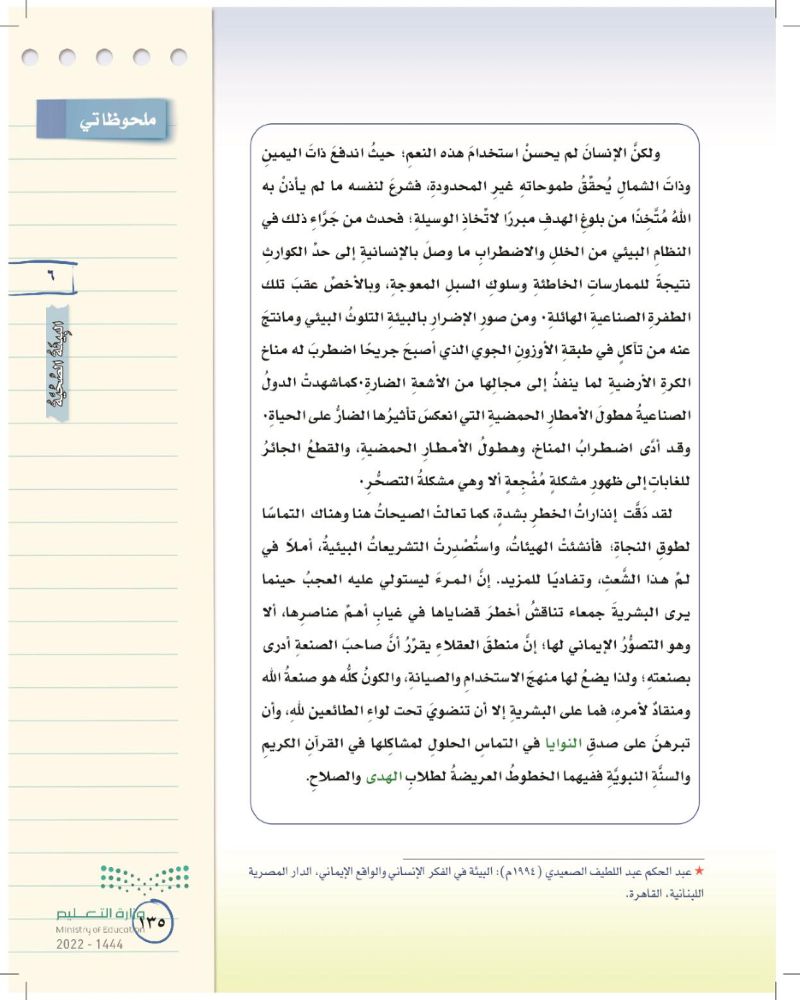 ملحوظاتي
٦
البيئة الصحية
ولكنَّ الإنسانَ لم يحسنْ استخدامَ هذه النعم؛ حيثُ اندفعَ ذاتَ اليمينِ
وذاتَ الشمالِ يُحقِّقُ طموحاتهِ غيرِ المحدودةِ، فشرعَ لنفسه ما لم يأذنْ به
اللهُ مُتَّخِذًا من بلوغِ الهدفِ مبررًا لاتّخاذِ الوسيلةِ؛ فحدث من جَرَّاءِ ذلك في
النظامِ البيئي من الخللِ والاضطرابِ ما وصلَ بالإنسانيةِ إلى حدِّ الكوارثِ
نتيجةً للممارساتِ الخاطئةِ وسلوكِ السبلِ المعوجةِ، وبالأخصِّ عقبَ تلك
الطفرةِ الصناعيةِ الهائلةِ. ومن صورِ الإضرارِ بالبيئةِ التلوثُ البيئي ومانتجَ
عنه من تآكلٍ في طبقةِ الأوزونِ الجوي الذي أصبحَ جريحًا اضطربَ له مناخ
الكرةِ الأرضيةِ لما ينفذُ إلى مجالِها من الأشعةِ الضارةِ.كماشهدتْ الدولُ
الصناعيةُ هطولَ الأمطارِ الحمضيةِ التي انعكسَ تأثيرُها الضارُّ على الحياةِ.
وقد أدَّى اضطرابُ المناخِ، وهطولُ الأمطارِ الحمضيةِ، والقطعُ الجائرُ
للغاباتِ إلى ظهورِ مشكلةٍ مُفْجِعةٍ ألا وهي مشكلةُ التصحُّرِ.
لقد دَقَّت إنذاراتُ الخطرِ بشدةٍ، كما تعالتْ الصيحاتُ هنا وهناك التماسًا
لطوقِ النجاةِ؛ فأنشئتْ الهيئاتُ، واستُصْدِرتْ التشريعاتُ البيئيةُ، أملاً في
لمِّ هذا الشَّعثِ، وتفاديًا للمزيد. إنَّ المرءَ ليستولي عليه العجبُ حينما
يرى البشريةَ جمعاء تناقشُ أخطرَ قضاياها في غيابِ أهمِّ عناصرِها، ألا
وهو التصوُّرُ الإيماني لها؛ إنَّ منطقَ العقلاءِ يقرِّرُ أنَّ صاحبَ الصنعةِ أدرى
بصنعتهِ؛ ولذا يضعُ لها منهجَ الاستخدامِ والصيانةِ، والكونُ كلُّه هو صنعةُ الله
ومنقادٌ لأمرهِ، فما على البشريةِ إلا أن تنضويَ تحت لواءِ الطائعين للهِ، وأن
تبرهنَ على صدقِ النوايا في التماسِ الحلولِ لمشاكلِها في القرآنِ الكريمِ
والسنَّةِ النبويَّةِ ففيهما الخطوطُ العريضةُ لطلابِ الهدى والصلاحِ.
★ عبد الحكم عبد اللطيف الصعيدي (١٩٩٤م): البيئة في الفكر الإنساني والواقع الإيماني، الدار المصرية
اللبنانية، القاهرة.
وزارة التعليم
Ministry of Education
2022 - 1444
١٣٥